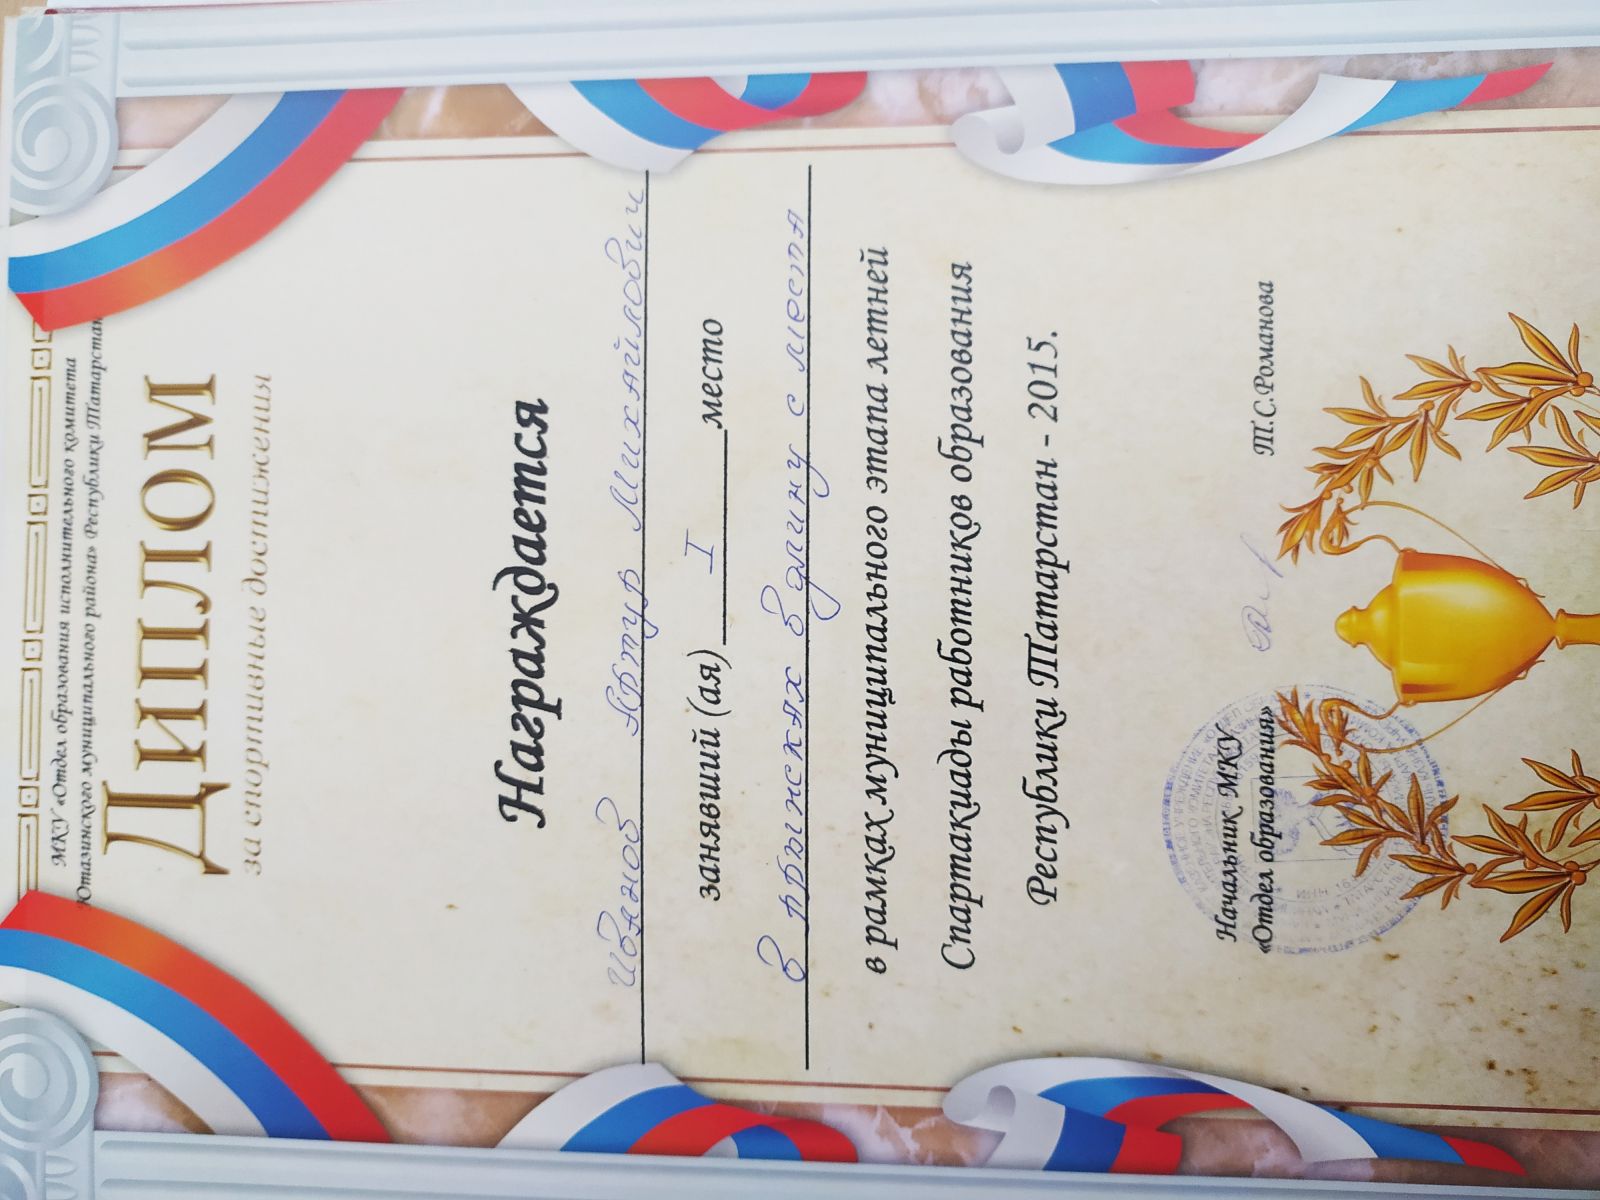 МКУ «Отдел образования исполнительного комитета
Ютазинского муниципального района» Республики Татарстан
ДИПЛОМ
за спортивные достижения
Награждается
Иванов Артур Михайлович
занявший (ая) I место
в прыжках в длину с места
в рамках муниципального этапа летней
Спартакиады работников образования
Республики Татарстан - 2015.
Начальник МКУ
«Отдел образования» Т.С.Романова